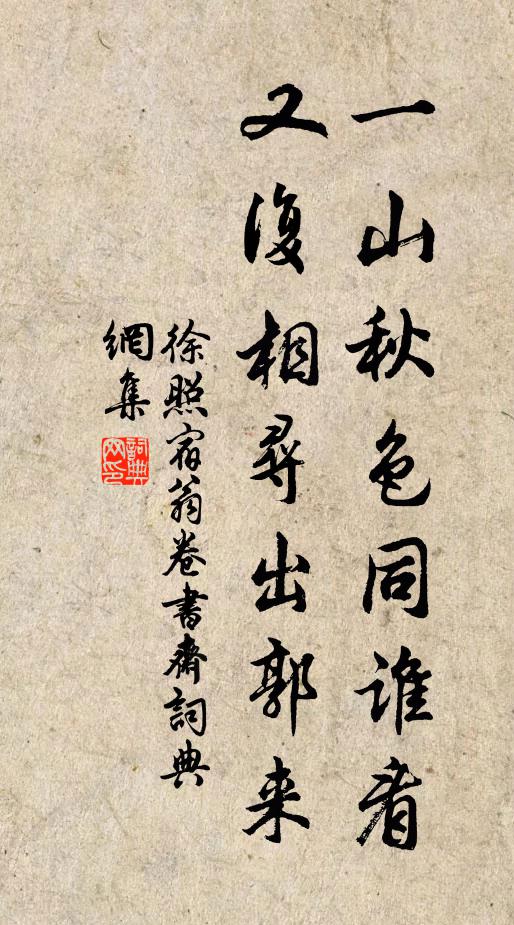 一山秋色同誰看
又復相尋出郭来
徐照宿翁卷書齋詞典
網集
詞典網印